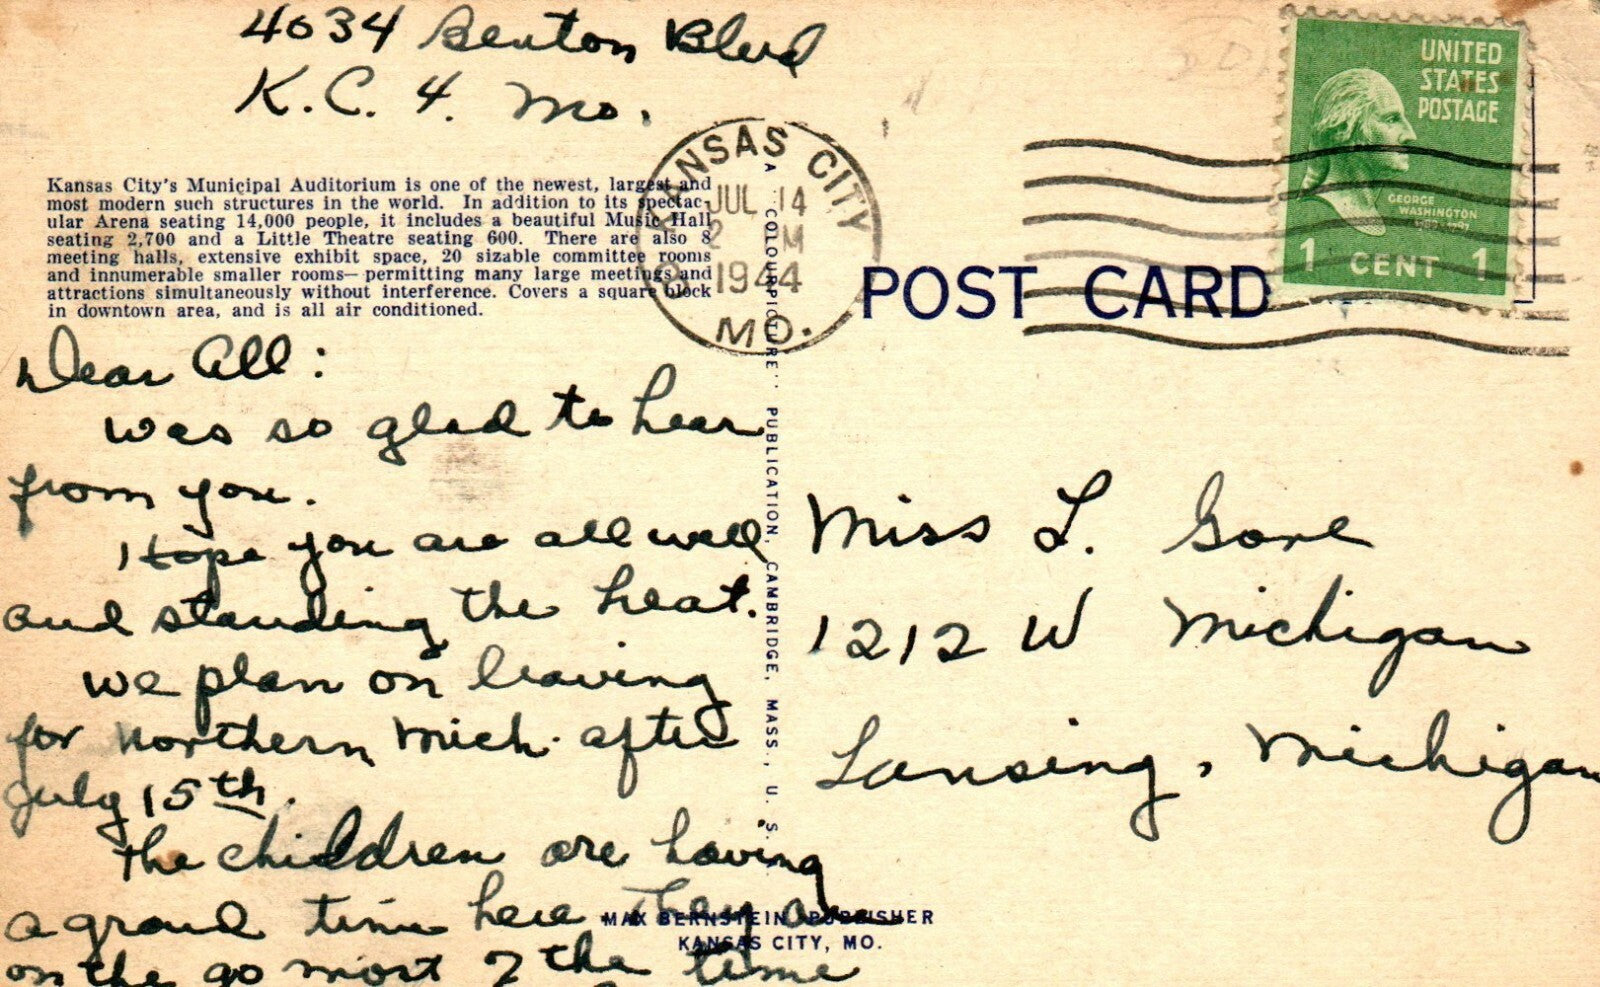 4034 Benton Blvd
K.C. 4. Mo.
Kansas City's Municipal Auditorium is one of the newest, largest and
most modern such structures in the world. In addition to its spectac-
ular Arena seating 14,000 people, it includes a beautiful Music Hall
seating 2,700 and a Little Theatre seating 600. There are also 8
meeting halls, extensive exhibit space, 20 sizable committee rooms
and innumerable smaller rooms— permitting many large meetings and
attractions simultaneously without interference. Covers a square block
in downtown area, and is all air conditioned.
Dear All:
was so glad to hear
from you.
Hope you are all well
and standing the heat.
we plan on leaving
for northern Mich. after
July 15th.
the children are having
a grand time here They are
on the go most of the time
KANSAS CITY
JUL 14
2 M
1944
MO.
A "COLOURPICTURE" PUBLICATION, CAMBRIDGE, MASS., U. S.
MAX BERNSTEIN, PUBLISHER
KANSAS CITY, MO.
POST CARD
UNITED
STATES
POSTAGE
GEORGE
WASHINGTON
1 CENT 1
Miss L. Gore
1212 W Michigan
Lansing, Michigan